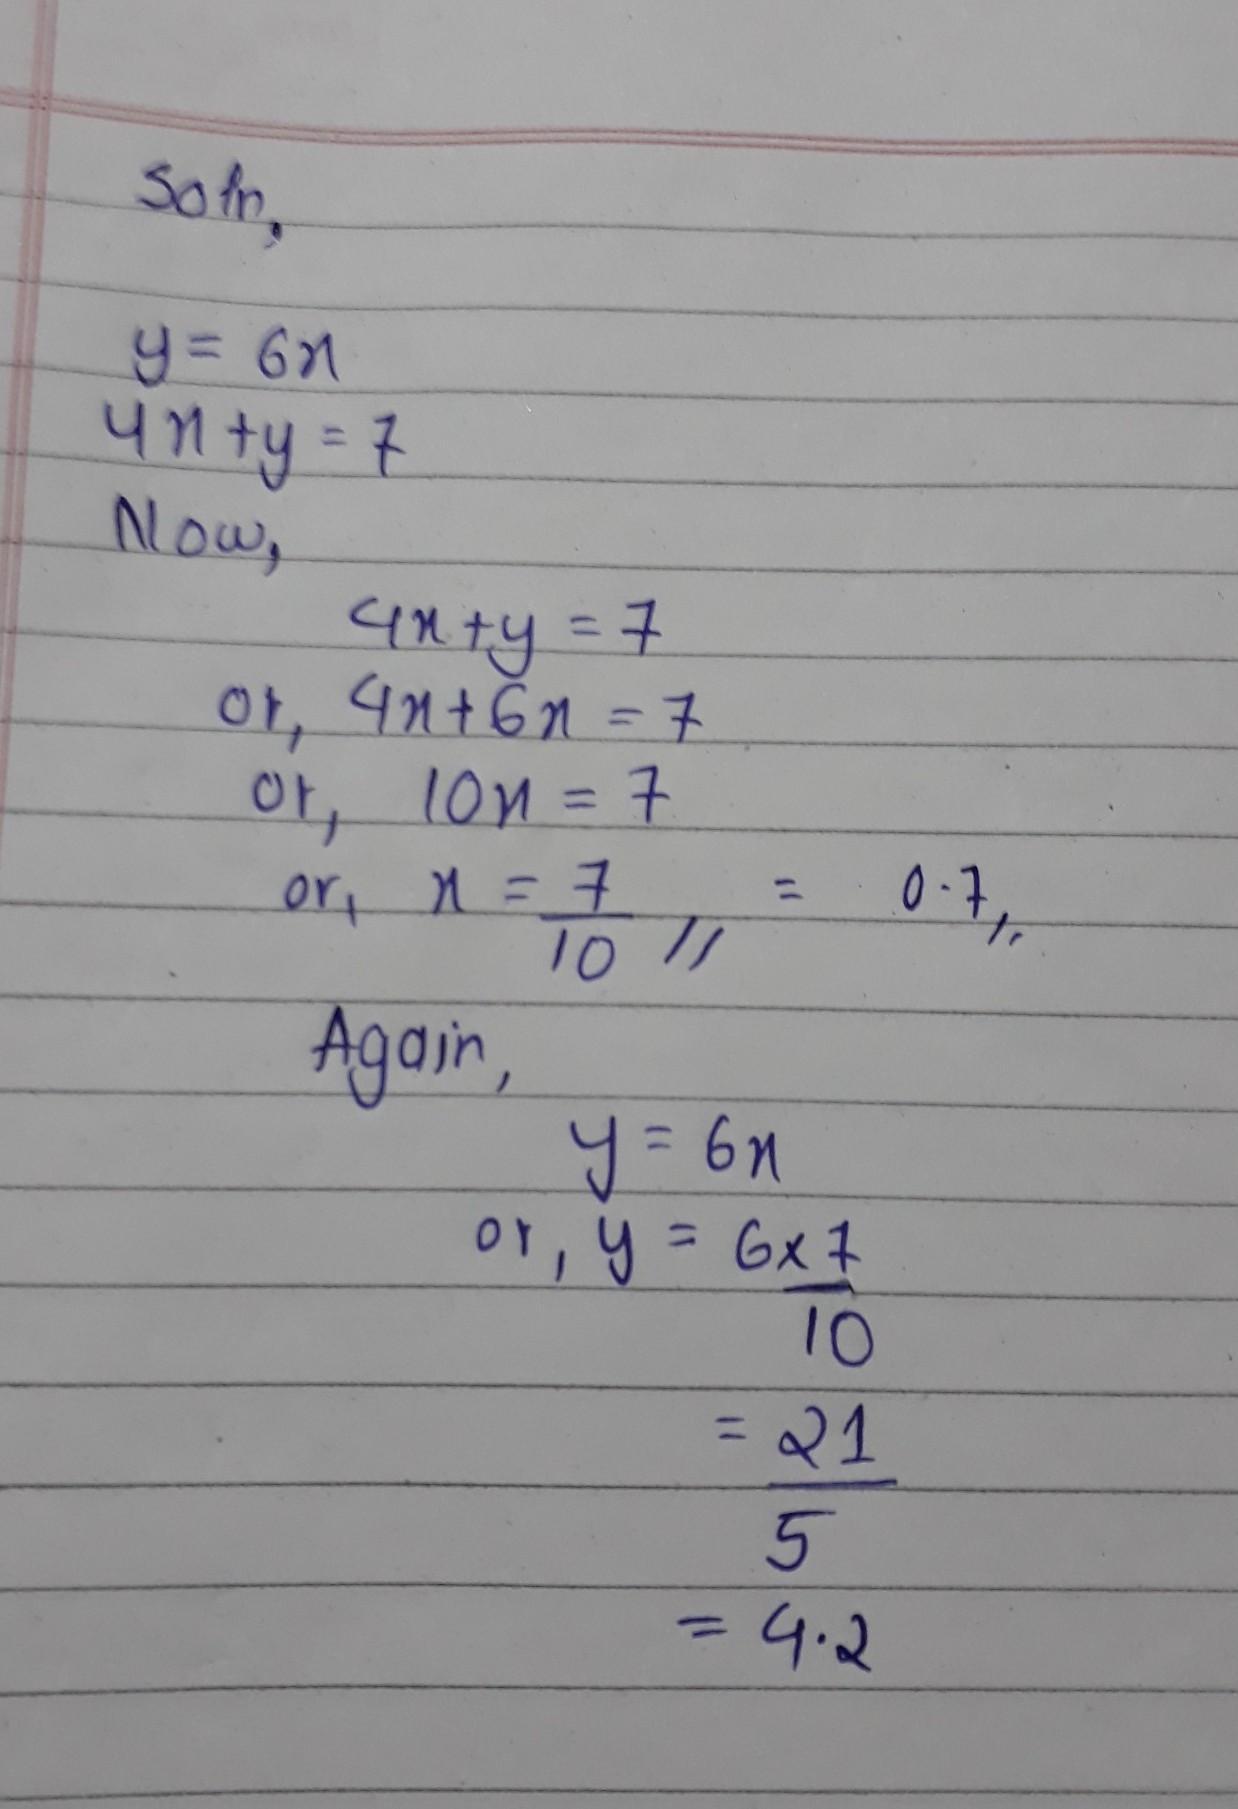 Soln,
y = 6x
4x + y = 7
Now,
4x + y = 7
or, 4x + 6x = 7
or, 10x = 7
or, x = 7/10 // = 0.7,,
Again,
y = 6x
or, y = 6 x 7/10
= 21/5
= 4.2